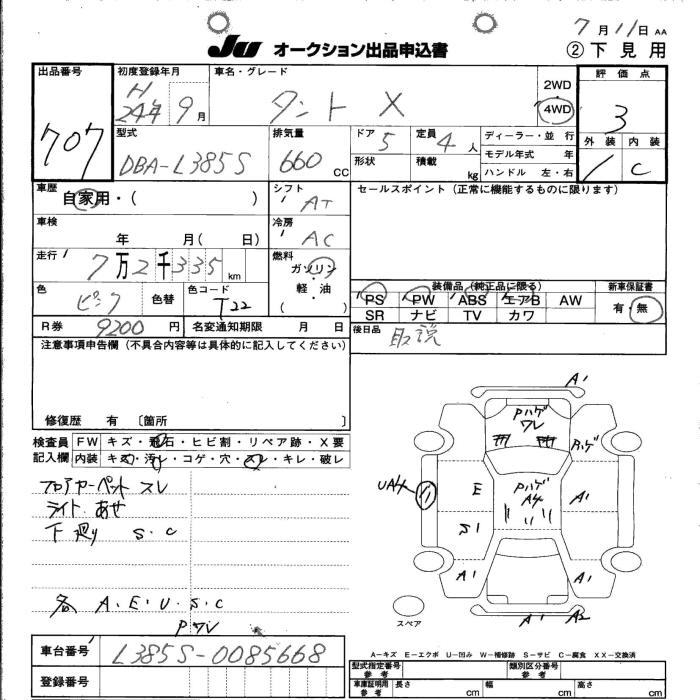 7月11日 AA
JU オークション出品申込書 ②下見用
出品番号 707
初度登録年月 H 24年9月
車名・グレード タント X
2WD
4WD
評価点 3
外装 内装
1 C
型式 DBA-L385S
排気量 660 CC
ドア 5
定員 4人
ディーラー・並行
形状
積載 kg
モデル年式 年
ハンドル 左・右
車歴 自家用・( )
シフト AT
セールスポイント(正常に機能するものに限ります)
車検 年 月( 日)
冷房 AC
走行 7万2千335km
燃料 ガソリン
軽・油
( )
色 ピンク
色替
色コード T22
装備品(純正品に限る)
新車保証書
PS PW ABS エアB AW
SR ナビ TV カワ
有・無
R券 9200円
名変通知期限 月 日
後日品 取説
注意事項申告欄(不具合内容等は具体的に記入してください)
修復歴 有 〔箇所 〕
検査員 FW キズ・飛石・ヒビ割・リペア跡・X要
記入欄 内装 キズ・汚レ・コゲ・穴・スレ・キレ・破レ
フロアカーペット スレ
ライト あせ
下廻り S.C
各 A.E.U.S.C
Pワレ
A1
Pハゲ
ワレ
Pハゲ
UA4
E
Pハゲ
A4
A1
S1
A1
A1
A1 A2
スペア
A-キズ E-エクボ U-凹み W-補修跡 S-サビ C-腐食 XX-交換済
車台番号 L385S-0085668
登録番号
型式指定番号 参考
類別区分番号 参考
車庫証明用 参考
長さ cm
幅 cm
高さ cm